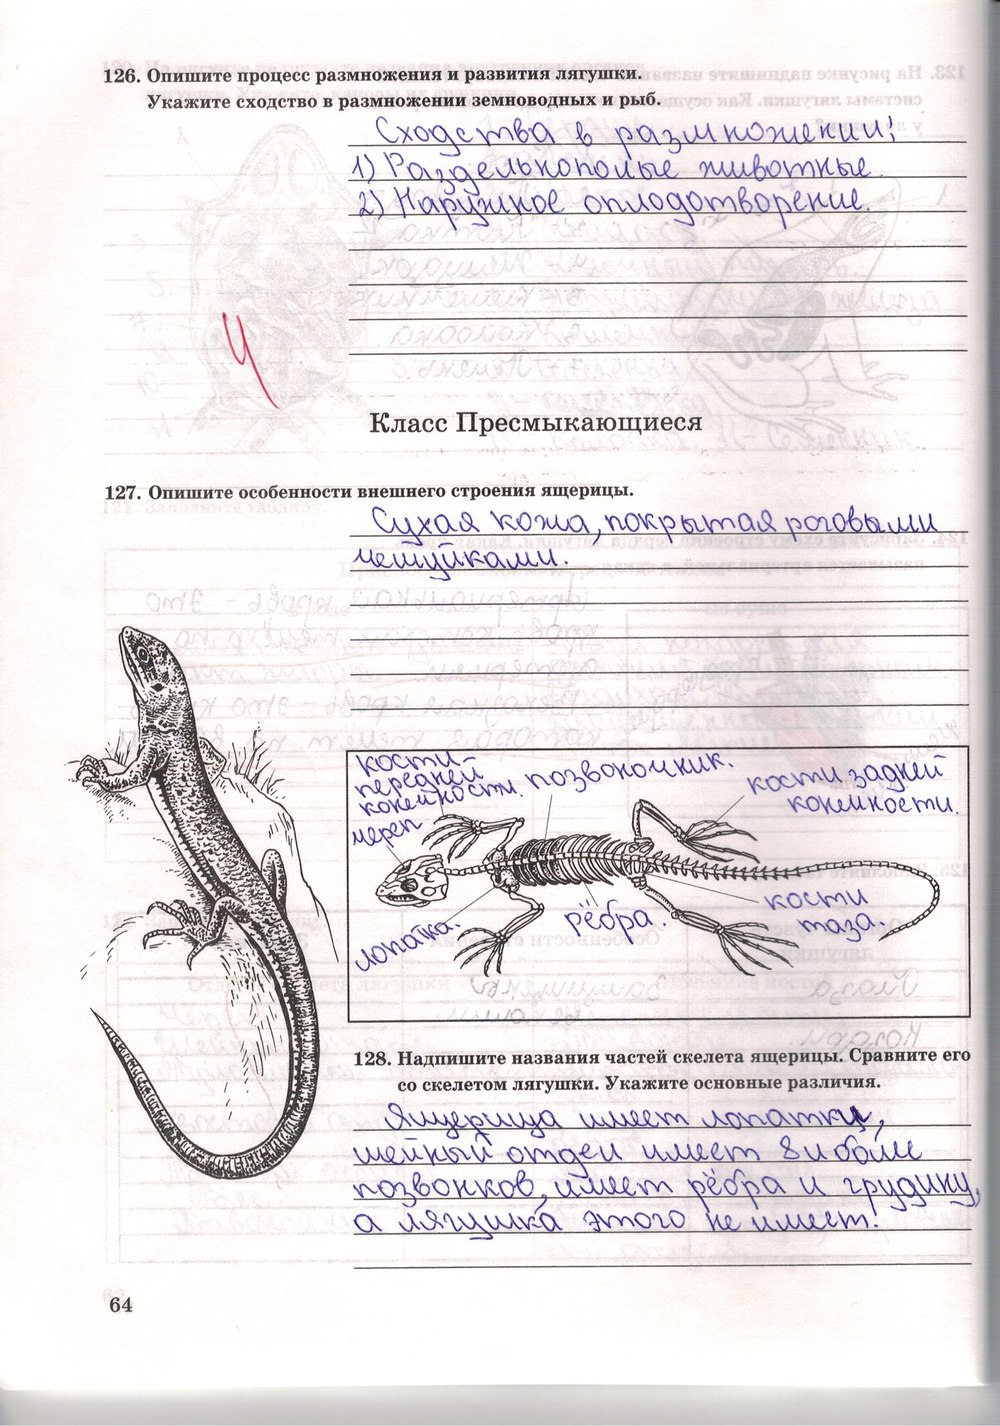 126. Опишите процесс размножения и развития лягушки.
Укажите сходство в размножении земноводных и рыб.
Сходства в размножении:
1) Раздельнополые животные.
2) Наружное оплодотворение.
4
Класс Пресмыкающиеся
127. Опишите особенности внешнего строения ящерицы.
Сухая кожа, покрытая роговыми
чешуйками.
кости
передней
конечности.
череп
позвоночник.
кости задней
конечности.
лопатка.
рёбра.
кости
таза.
128. Надпишите названия частей скелета ящерицы. Сравните его
со скелетом лягушки. Укажите основные различия.
Ящерица имеет лопатки,
шейный отдел имеет 8 и более
позвонков, имеет рёбра и грудину,
а лягушка этого не имеет.
64